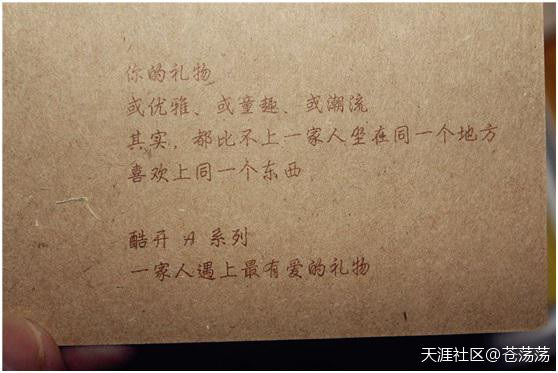 你的礼物
或优雅、或童趣、或潮流
其实，都比不上一家人坐在同一个地方
喜欢上同一个东西
酷开 A 系列
一家人遇上最有爱的礼物
天涯社区@苍荡荡